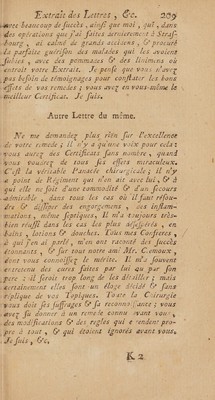 Extrait des Lettres, &c. 209
avec beaucoup de succès, ainsi que moi, qui, dans
des opérations que j'ai faites dernierement à Stras-
bourg, ai calmé de grands accidens, & procuré
la parfaite guérison des malades qui les avoient
subies, avec des pommades & des linimens où
entroit votre Extrait. Je pense que vous n'avez
pas besoin de témoignages pour constater les bons
effets de vos remedes; vous avez en vous-même le
meilleur Certificat. Je suis.
Autre Lettre du même.
Ne me demandez plus rien sur l'excellence
de votre remede; il n'y a qu'une voix pour cela:
vous aurez des Certificats sans nombre, quand
vous voudrez de tous ses effets merveilleux.
C'est la véritable Panacée chirurgicale; il n'y
a point de Régiment qui n'en ait avec lui, & à
qui elle ne soit d'une commodité & d'un secours
admirable, dans tous les cas où il faut résou-
dre & dissiper des engorgemens, des inflam-
mations, même septiques. Il m'a toujours très-
bien réussi dans les cas les plus désespérés, en
bains, lotions & douches. Tous mes Confreres,
à qui j'en ai parlé, m'en ont raconté des succès
étonnans, & sur tout notre ami Mr.
dont vous connoissez le mérite. Il m'a souvent
entretenu des cures faites par lui ou par son
pere: il seroit trop long de les détailler; mais
certainement elles sont un éloge décidé & sans
réplique de vos Topiques. Toute la Chirurgie
vous doit ses suffrages & sa reconnoissance; vous
avez su donner à un remede connu avant vous,
des modifications & des regles qui le rendent pro-
pre à tout, & qui étoient ignorés avant vous.
Je suis, &c.
K 2